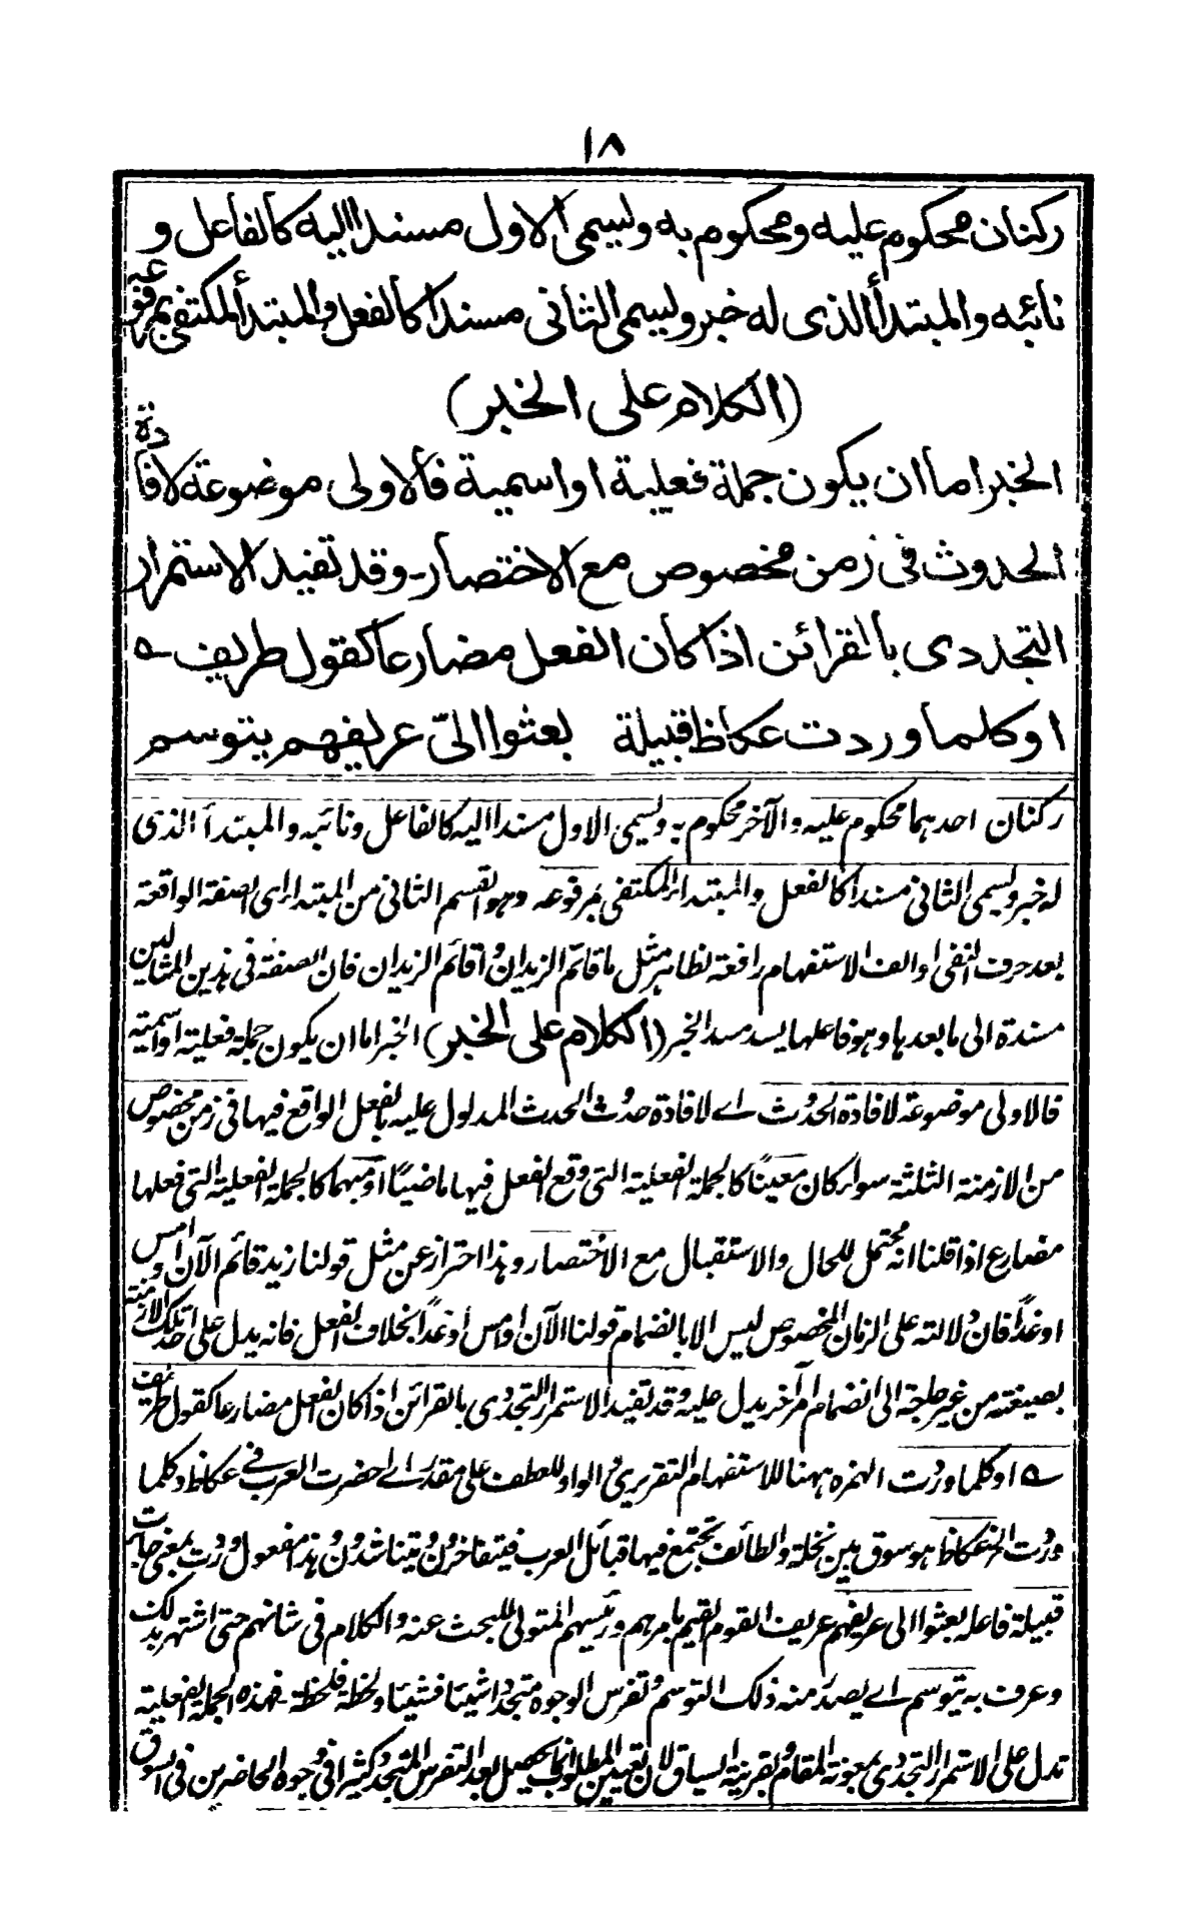 ١٨
ركنان محكوم عليه ومحكوم به ويسمى الاول مسندا اليه كالفاعل و
نائبه والمبتدأ الذى له خبر ويسمى الثانى مسندا كالفعل والمبتدأ المكتفى بمرفوعه
(الكلام على الخبر)
الخبر اما ان يكون جملة فعلية او اسمية فألاولى موضوعة لافادة
الحدوث فى زمن مخصوص مع الاختصار- وقد تفيد الاستمرار
التجددى بالقرائن اذا كان الفعل مضارعا كقول طريف ے
او كلما وردت عكاظ قبيلة بعثوا الىّ عريفهم يتوسم
ركنان احدهما محكوم عليه والآخر محكوم به ويسمى الاول مسندا اليه كالفاعل ونائبه والمبتدأ الذى
له خبر ويسمى الثانى مسندا كالفعل والمبتدأ المكتفى بمرفوعه وهو القسم الثانى من المبتدا اى الصفة الواقعة
بعد حرف النفى او الف الاستفهام رافعة لظاهر مثل ما قائم الزيدان و اقائم الزيدان فان الصفة فى هذين المثالين
مسندة الى ما بعدها وهو فاعلها يسد مسد الخبر (الكلام على الخبر) الخبر اما ان يكون جملة فعلية او اسمية
فالاولى موضوعة لافادة الحدوث اے لافادة حدوث الحدث المدلول عليه بالفعل الواقع فيها فى زمن مخصوص
من الازمنة الثلثة سواء كان معينًا كالجملة الفعلية التى وقع الفعل فيها ماضيًا او مبهما كالجملة الفعلية التى فعلها
مضارع اذا قلنا انه محتمل للحال والاستقبال مع الاختصار وهذا احتراز عن مثل قولنا زيد قائم الآن او امس
او غدًا فان دلالته على الزمان المخصوص ليس الا بانضمام قولنا الآن او امس او غدًا بخلاف الفعل فانه يدل على احد تلك الازمنة
بصيغته من غير حاجة الى انضمام امر آخر يدل عليه وقد تفيد الاستمرار التجددى بالقرائن اذا كان الفعل مضارعا كقول طريف
ے او كلما وردت الهمزه ههنا للاستفهام التقريرى والواو للعطف على مقدر اے احضرت العرب فے عكاظ وكلما
وردت الخ عكاظ هو سوق بين نخلة والطائف تجتمع فيها قبائل العرب فيتفاخرون ويتناشدون وهذا مفعول وردت بمعنى جاءت
قبيلة فاعله بعثوا الى عريفهم عريف القوم القيم بامرهم ورئيسهم المتولى للبحث عنه والكلام فى شانهم حتى اشتهر بذلك
وعرف به يتوسم اے يصدر منه ذلك التوسم وتفرس الوجوه متجددا شيئا فشيئا ولحظة فلحظة فهذه الجملة الفعلية
تدل على الاستمرار التجددى بمعونة المقام وبقرينة السياق لان تعيين المطلوب انما يحصل بعد التفرس المتجدد كثيرا فى وجوه الحاضرين فى السوق